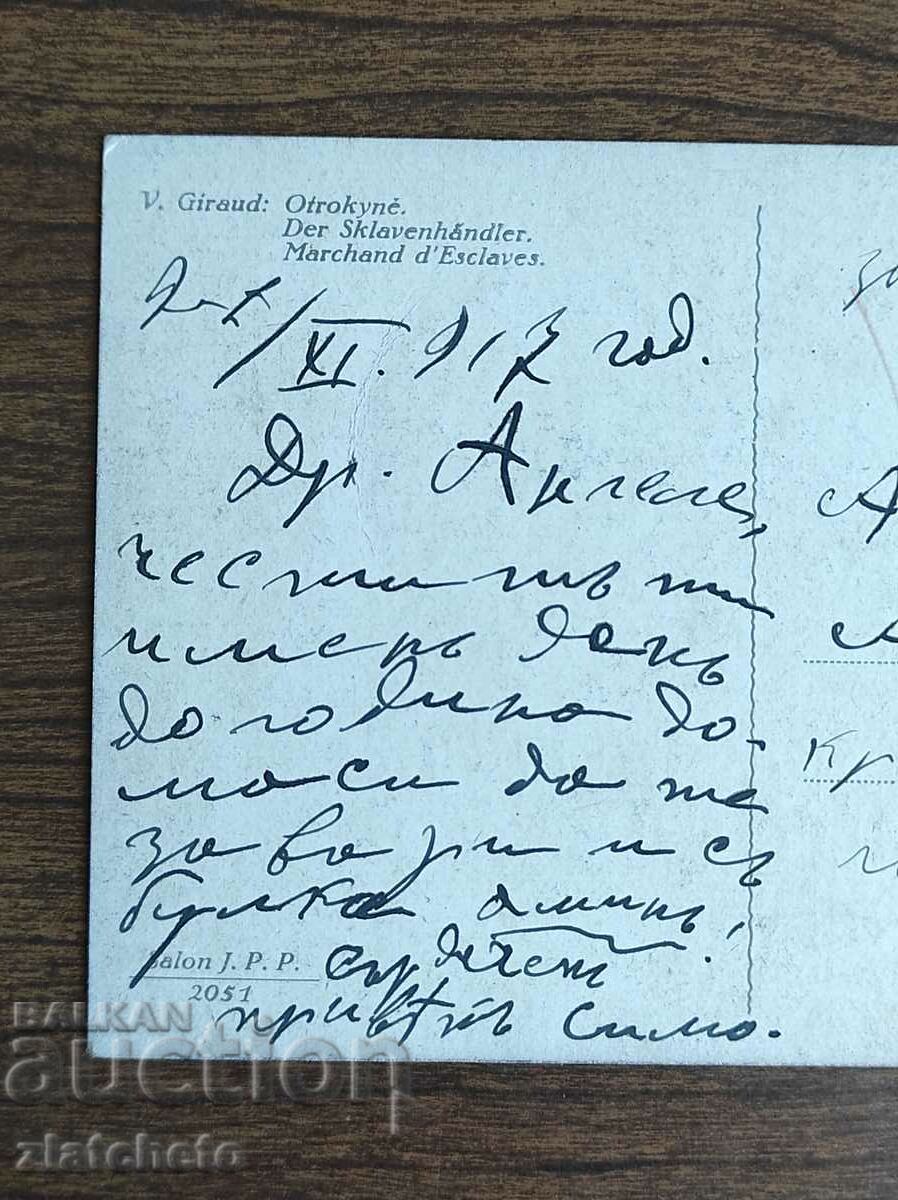 V. Giraud: Otrokyně.
Der Sklavenhändler.
Marchand d'Esclaves.
/XI. 917 год.
Др. Ангеле,
честитъ ти
именъ день
до година до-
заваримъ съ
булка аминь!
сърдеченъ
привѣтъ Симо.
Salon J. P. P.
2051
за
А
Кр
г
BALKAN
auction
zlatcheto